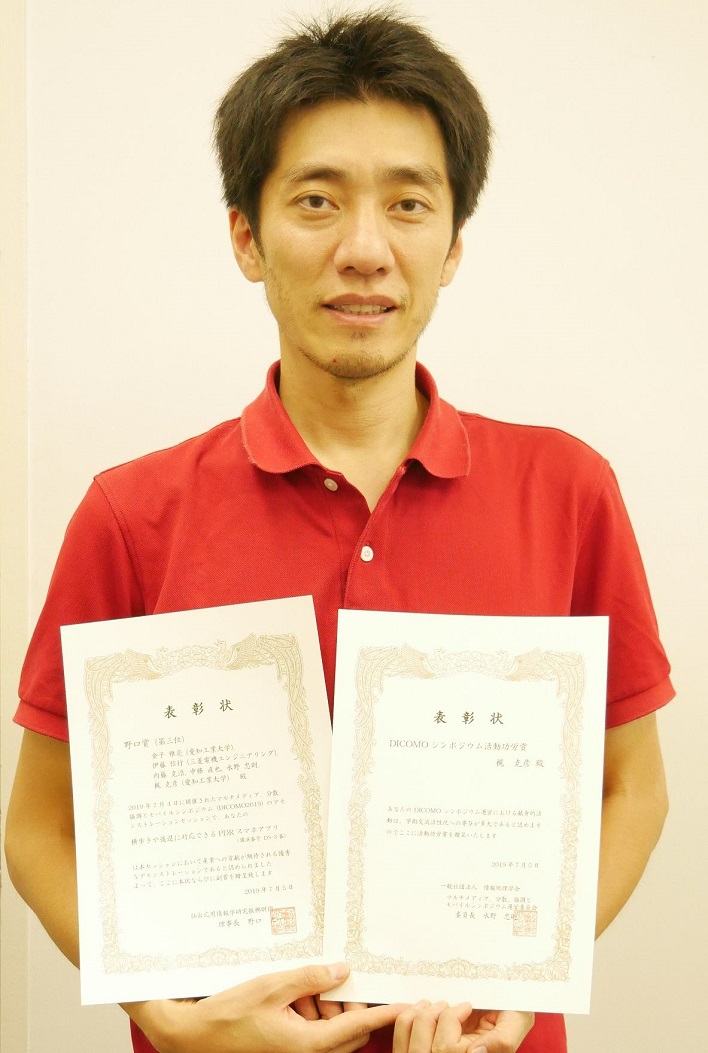 表彰状
野口賞（第三位）
金子 雅亮（愛知工業大学）,
伊藤 信行（三菱電機エンジニアリング）,
内藤 克浩, 中條 直也, 水野 忠則,
梶 克彦（愛知工業大学） 殿
2019年7月4日に開催されたマルチメディア、分散
協調とモバイルシンポジウム（DICOMO2019）のデモ
ンストレーションセッションで、あなたの
横歩きや後退に対応できるPDRスマホアプリ
は本セッションにおいて産業への貢献が期待される優秀
なデモンストレーションであると認められました
よって、ここに本状ならびに副賞を贈呈致します
2019年7月5日
仙台応用情報学研究振興財団
理事長 野口
表彰状
DICOMO シンポジウム活動功労賞
梶 克彦 殿
あなたの DICOMO シンポジウム運営における献身的活
動は、学術交流活性化への寄与が多大であると認めます
のでここに活動功労賞を贈呈いたします
2019年7月5日
一般社団法人 情報処理学会
マルチメディア、分散、協調と
モバイルシンポジウム運営委員会
委員長 水野 忠則